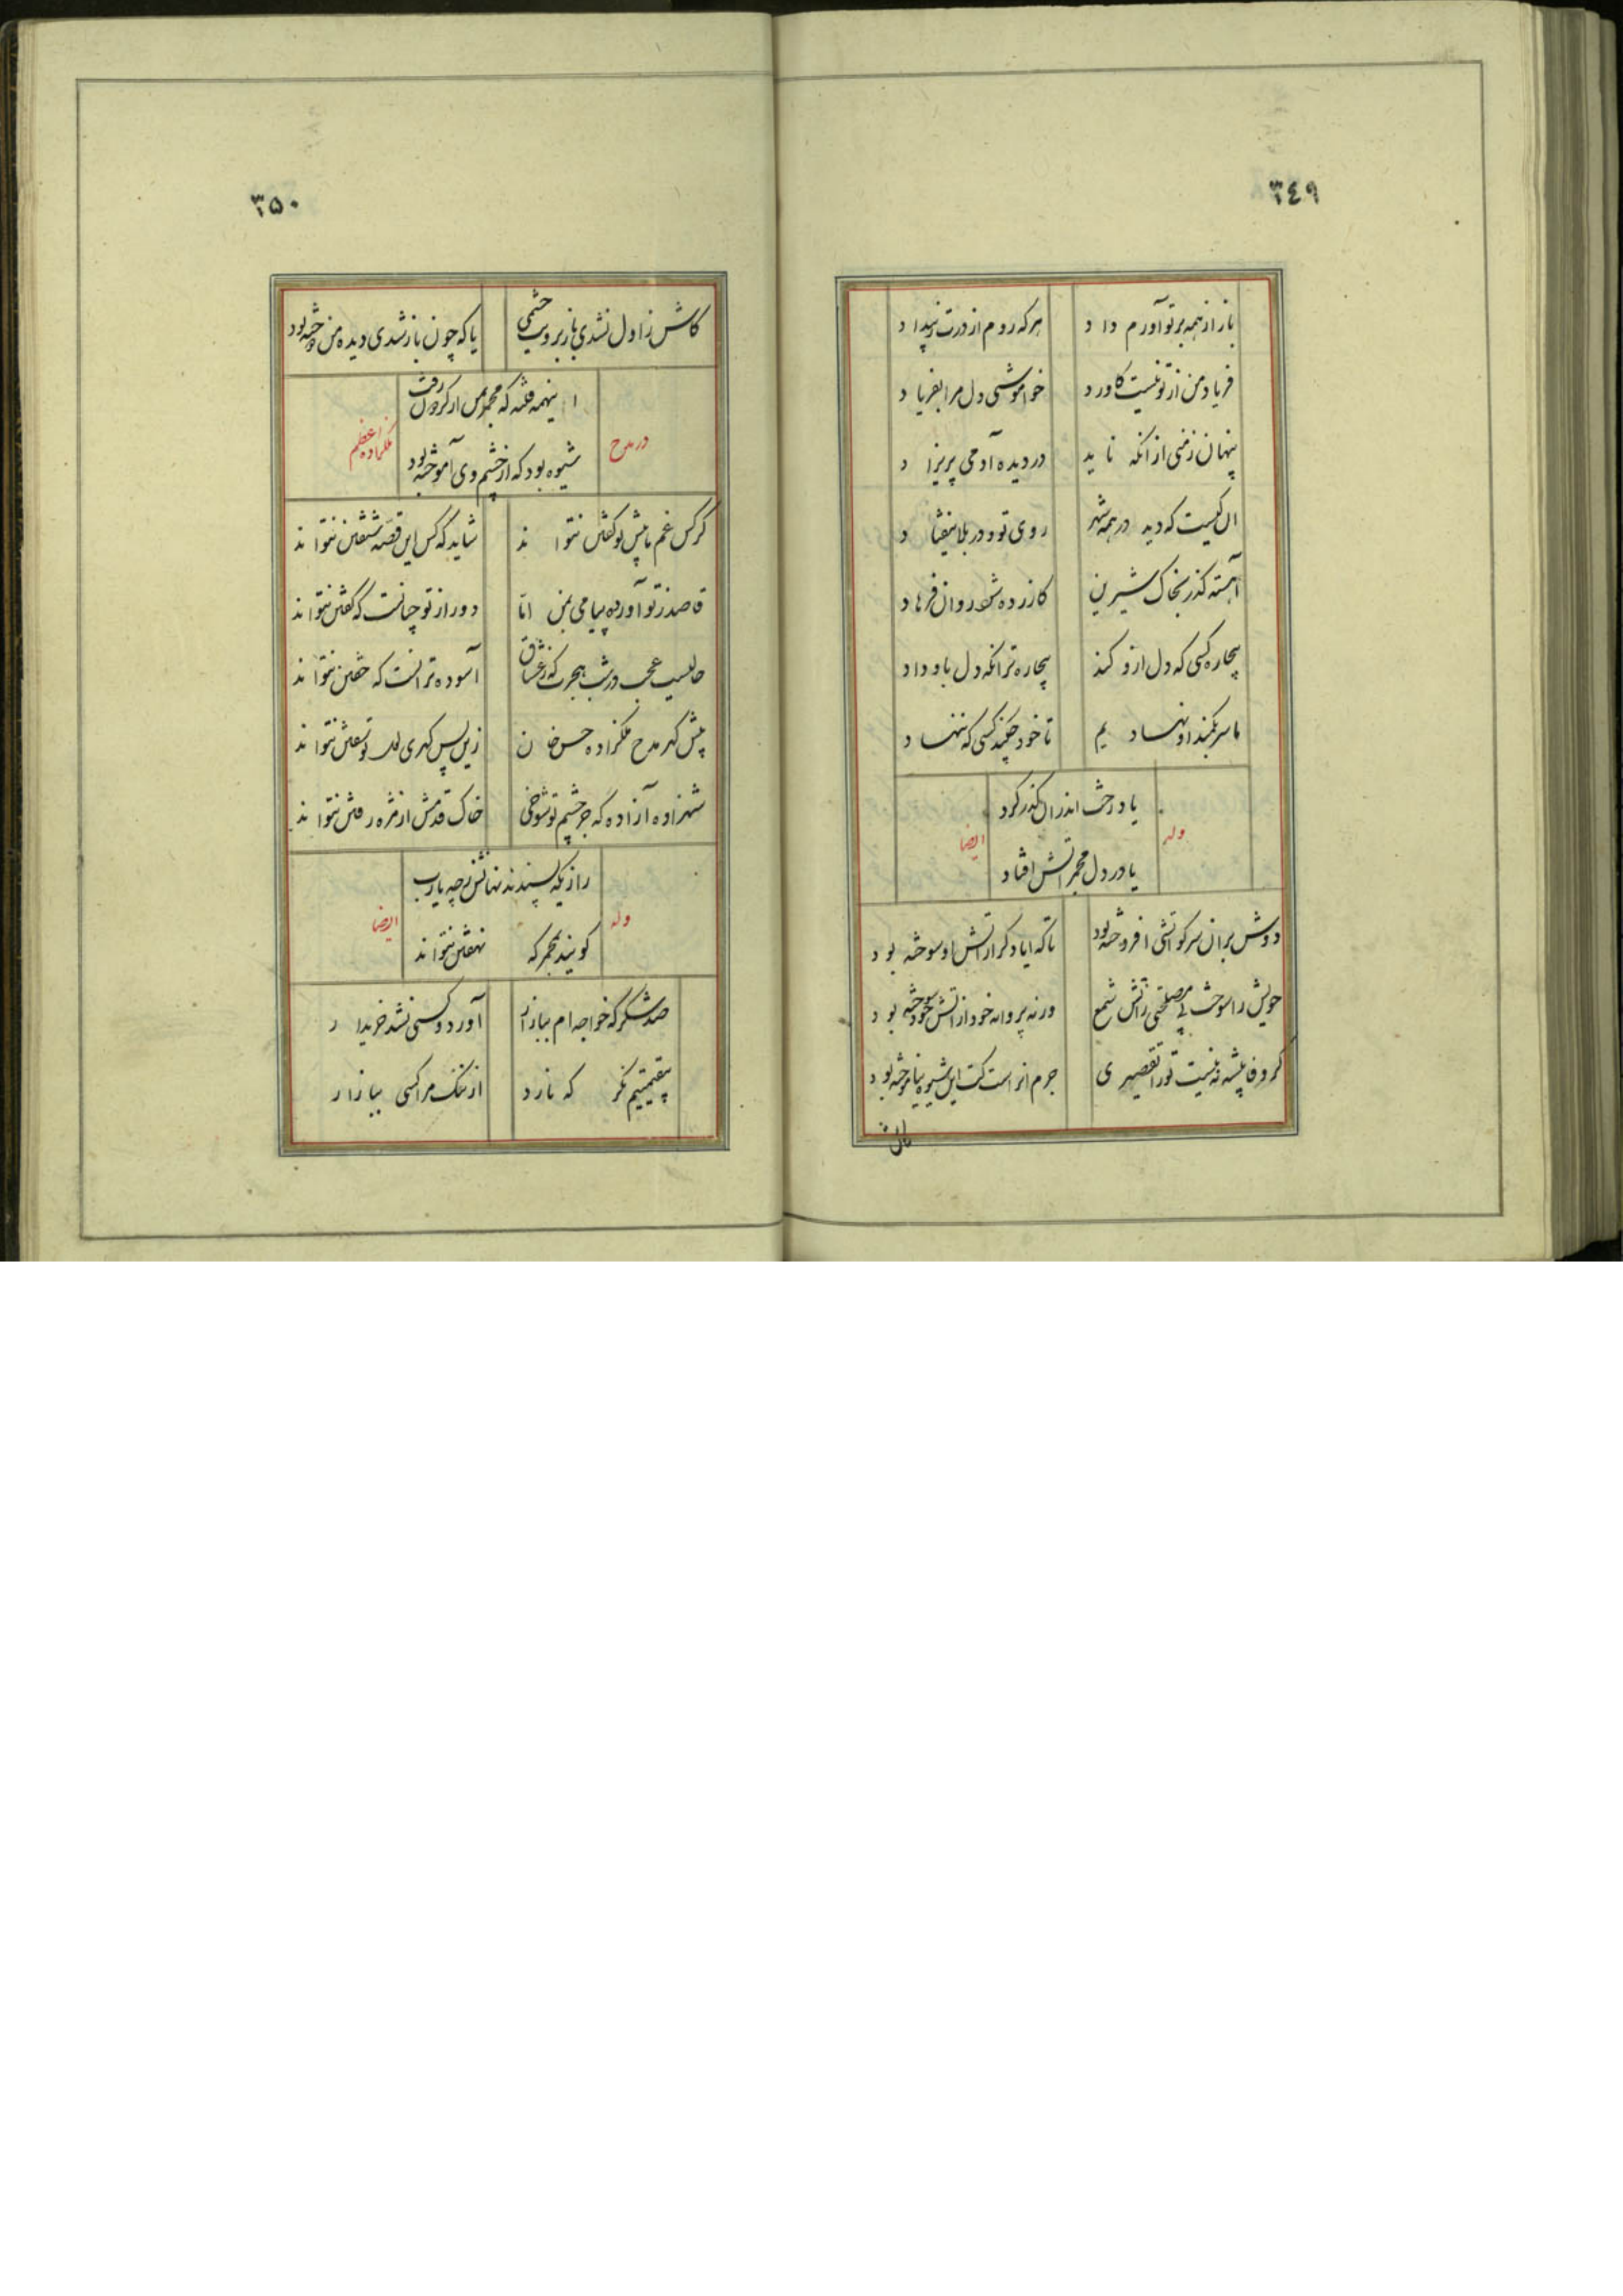 ٣٤٩
باز از همه بر تو آورم داد
هر که روم از درت ز بیداد
فریاد من از تو نیست کاورد
خواموشی دل مرا بفریاد
پنهان زمنی از آنکه ناید
در دیده آدمی پریزاد
ان کیست که دید در همه شهر
روی تو و در بلا نیفتاد
آهسته گذر بخاک شیرین
کازرده شود روان فرهاد
بیچاره کسی که دل ازو کند
بیچاره تر انکه دل باو داد
ما سر بکمند او نهادیم
تا خود چکند کسی که ننهاد
وله
یا درخت اندر ان گذر کرد
ایضا
یا در دل مجمر آتش افتاد
دوش بران سر کو آتشی افروخته بود
تا که ایا دگر از آتش او سوخته بود
خویش را سوخت پی مصلحتی زآتش شمع
ورنه پروانه خود از آتش خود سوخته بود
گر وفا پیشه نه نیست تو را تقصیری
جرم انراست کت این شیوه نیاموخته بود
٣٥٠
کاش ز اول نشدی باز برویت چشمی
یا که چون باز شدی دیده من دوخته بود
اینهمه فتنه که مجمر ز گردون رفت
در مدح
ملکزاده اعظم
شیوه بود که از چشم وی آموخته بود
گر کس غم ما پیش تو گفتن نتواند
شاید که کس این قصه شنفتن نتواند
قاصد ز تو آورده پیامی بمن اما
دور از تو چنانست که گفتن نتواند
حالیست عجب در شب هجرت که ز عشاق
آسوده تر انست که خفتن نتواند
پیش گهر مدح ملکزاده حسن خان
زین پس گهری لعل تو سفتن نتواند
شهزاده آزاده که جز چشم تو شوخی
خاک قدمش از مژه رفتن نتواند
رازیکه پسندند نهانش ز چه یارب
وله
ایضا
گویند بمجمر که نهفتن نتواند
صد شکر که خواجه ام ببازار
آورد و کسی نشد خریدار
بیقیمتیم نگر که نارد
از ننگ مرا کسی ببازار